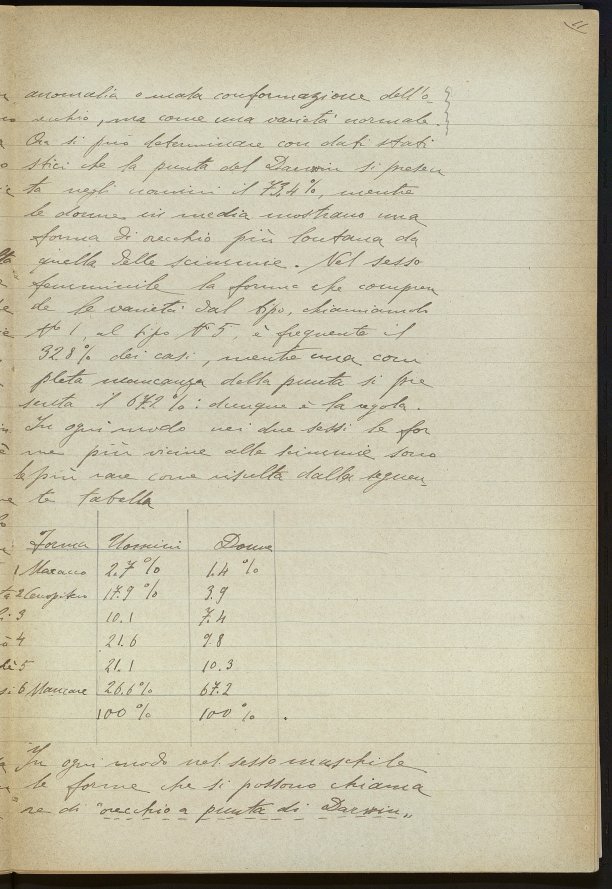 11
anomalia o mala conformazione dell'o-
recchio, ma come una varietà normale
Ora si può determinare con dati stati
stici che la punta del Darwin si presen
ta negli uomini il 73,4%, mentre
le donne in media mostrano una
forma di orecchio più lontana da
quella delle scimmie. Nel sesso
femminile la forma che compren
de le varietà dal tipo, chiamiamolo
No 1, al tipo No 5, è frequente il
32.8% dei casi, mentre una com
pleta mancanza della punta si pre
senta il 67.2%: dunque è la regola.
In ogni modo nei due sessi le for
me più vicine alle scimmie sono
le più rare come risulta dalla seguen-
te tabella
Forma Uomini Donne
1 Macaco 2.7% 1.4%
2 17.9% 3.9
3 10.1 7.4
4 21.6 9.8
5 21.1 10.3
6 Mancare 26.6% 67.2
100% 100%.
In ogni modo nel sesso maschile
le forme che si possono chiama
re di "orecchio a punta di Darwin"